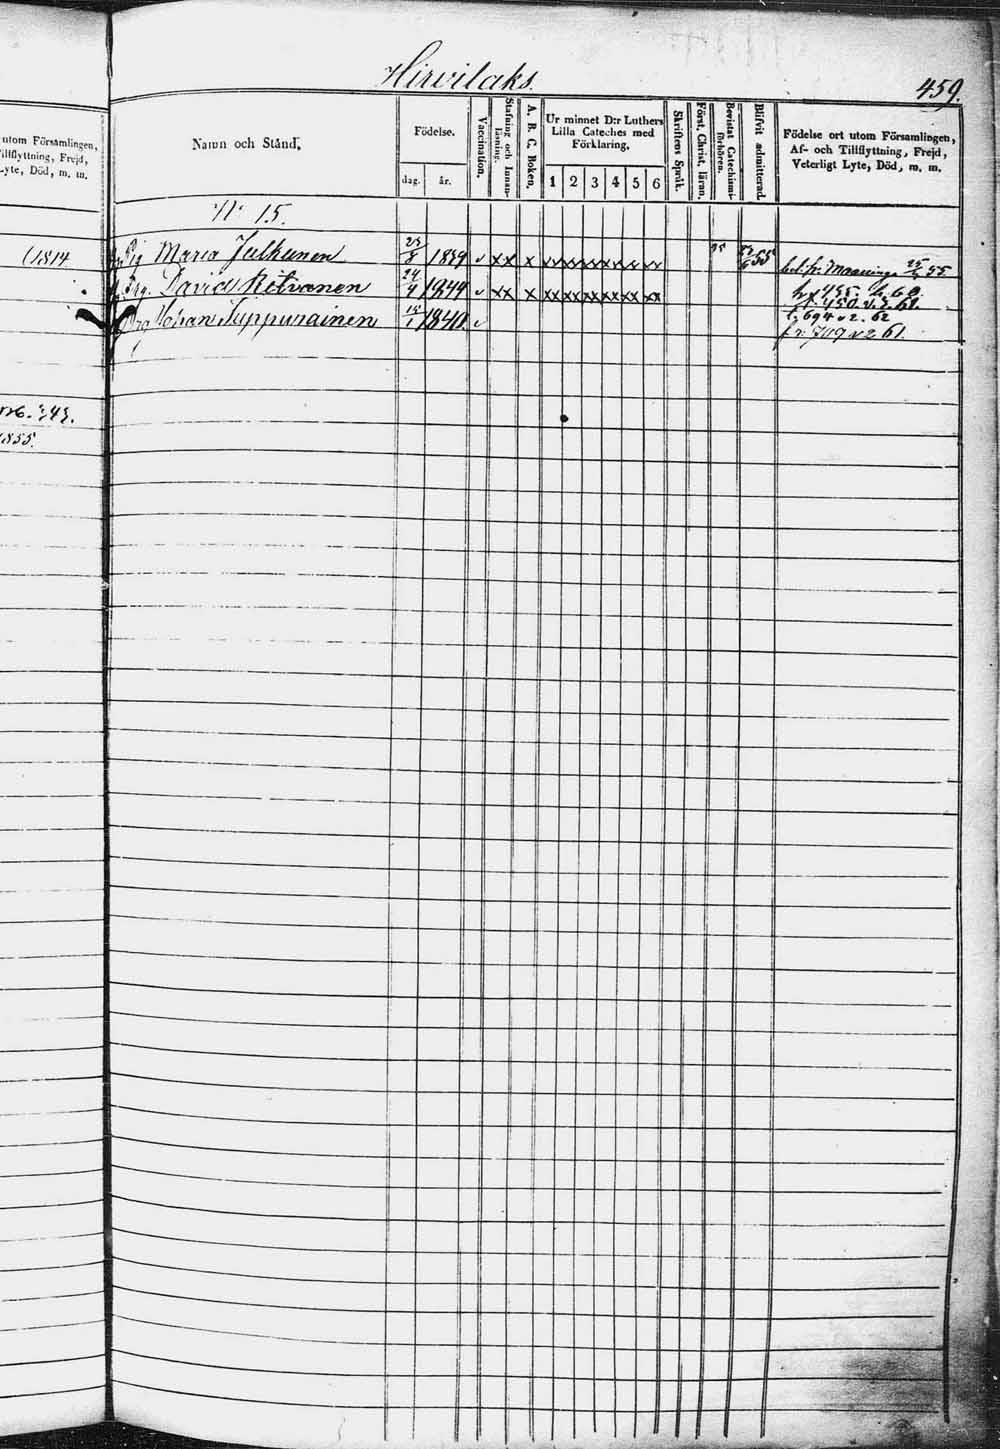 Hirvilaks.
459.
utom Församlingen,
Tillflyttning, Frejd,
Lyte, Död, m. m.
(1814
1855.
Namn och Stånd.
Födelse.
dag. år.
Vaccination.
Stafning och Innanläsning.
A. B. C. Boken.
Ur minnet D:r Luthers
Lilla Cateches med
Förklaring.
1 2 3 4 5 6
Skriftens Språk.
Först. Christ. läran.
Bevistat Catechismiförhören.
Blifvit admitterad.
Födelse ort utom Församlingen,
Af- och Tillflyttning, Frejd,
Veterligt Lyte, Död, m. m.
N:o 15.
Pig Maria Julkunen 23/8 1839 v xx x xx xx xx xx xx xx 55 bet. fr. Maaninga 25/ 55
Drg. David Ritvanen 24/4 1844 v xx x xx xx xx xx xx xx
450 v. 2. 61.
Drg Johan Suppurainen 15/1 1840. v 694 v 2. 62
fr. 709 v 2 61.